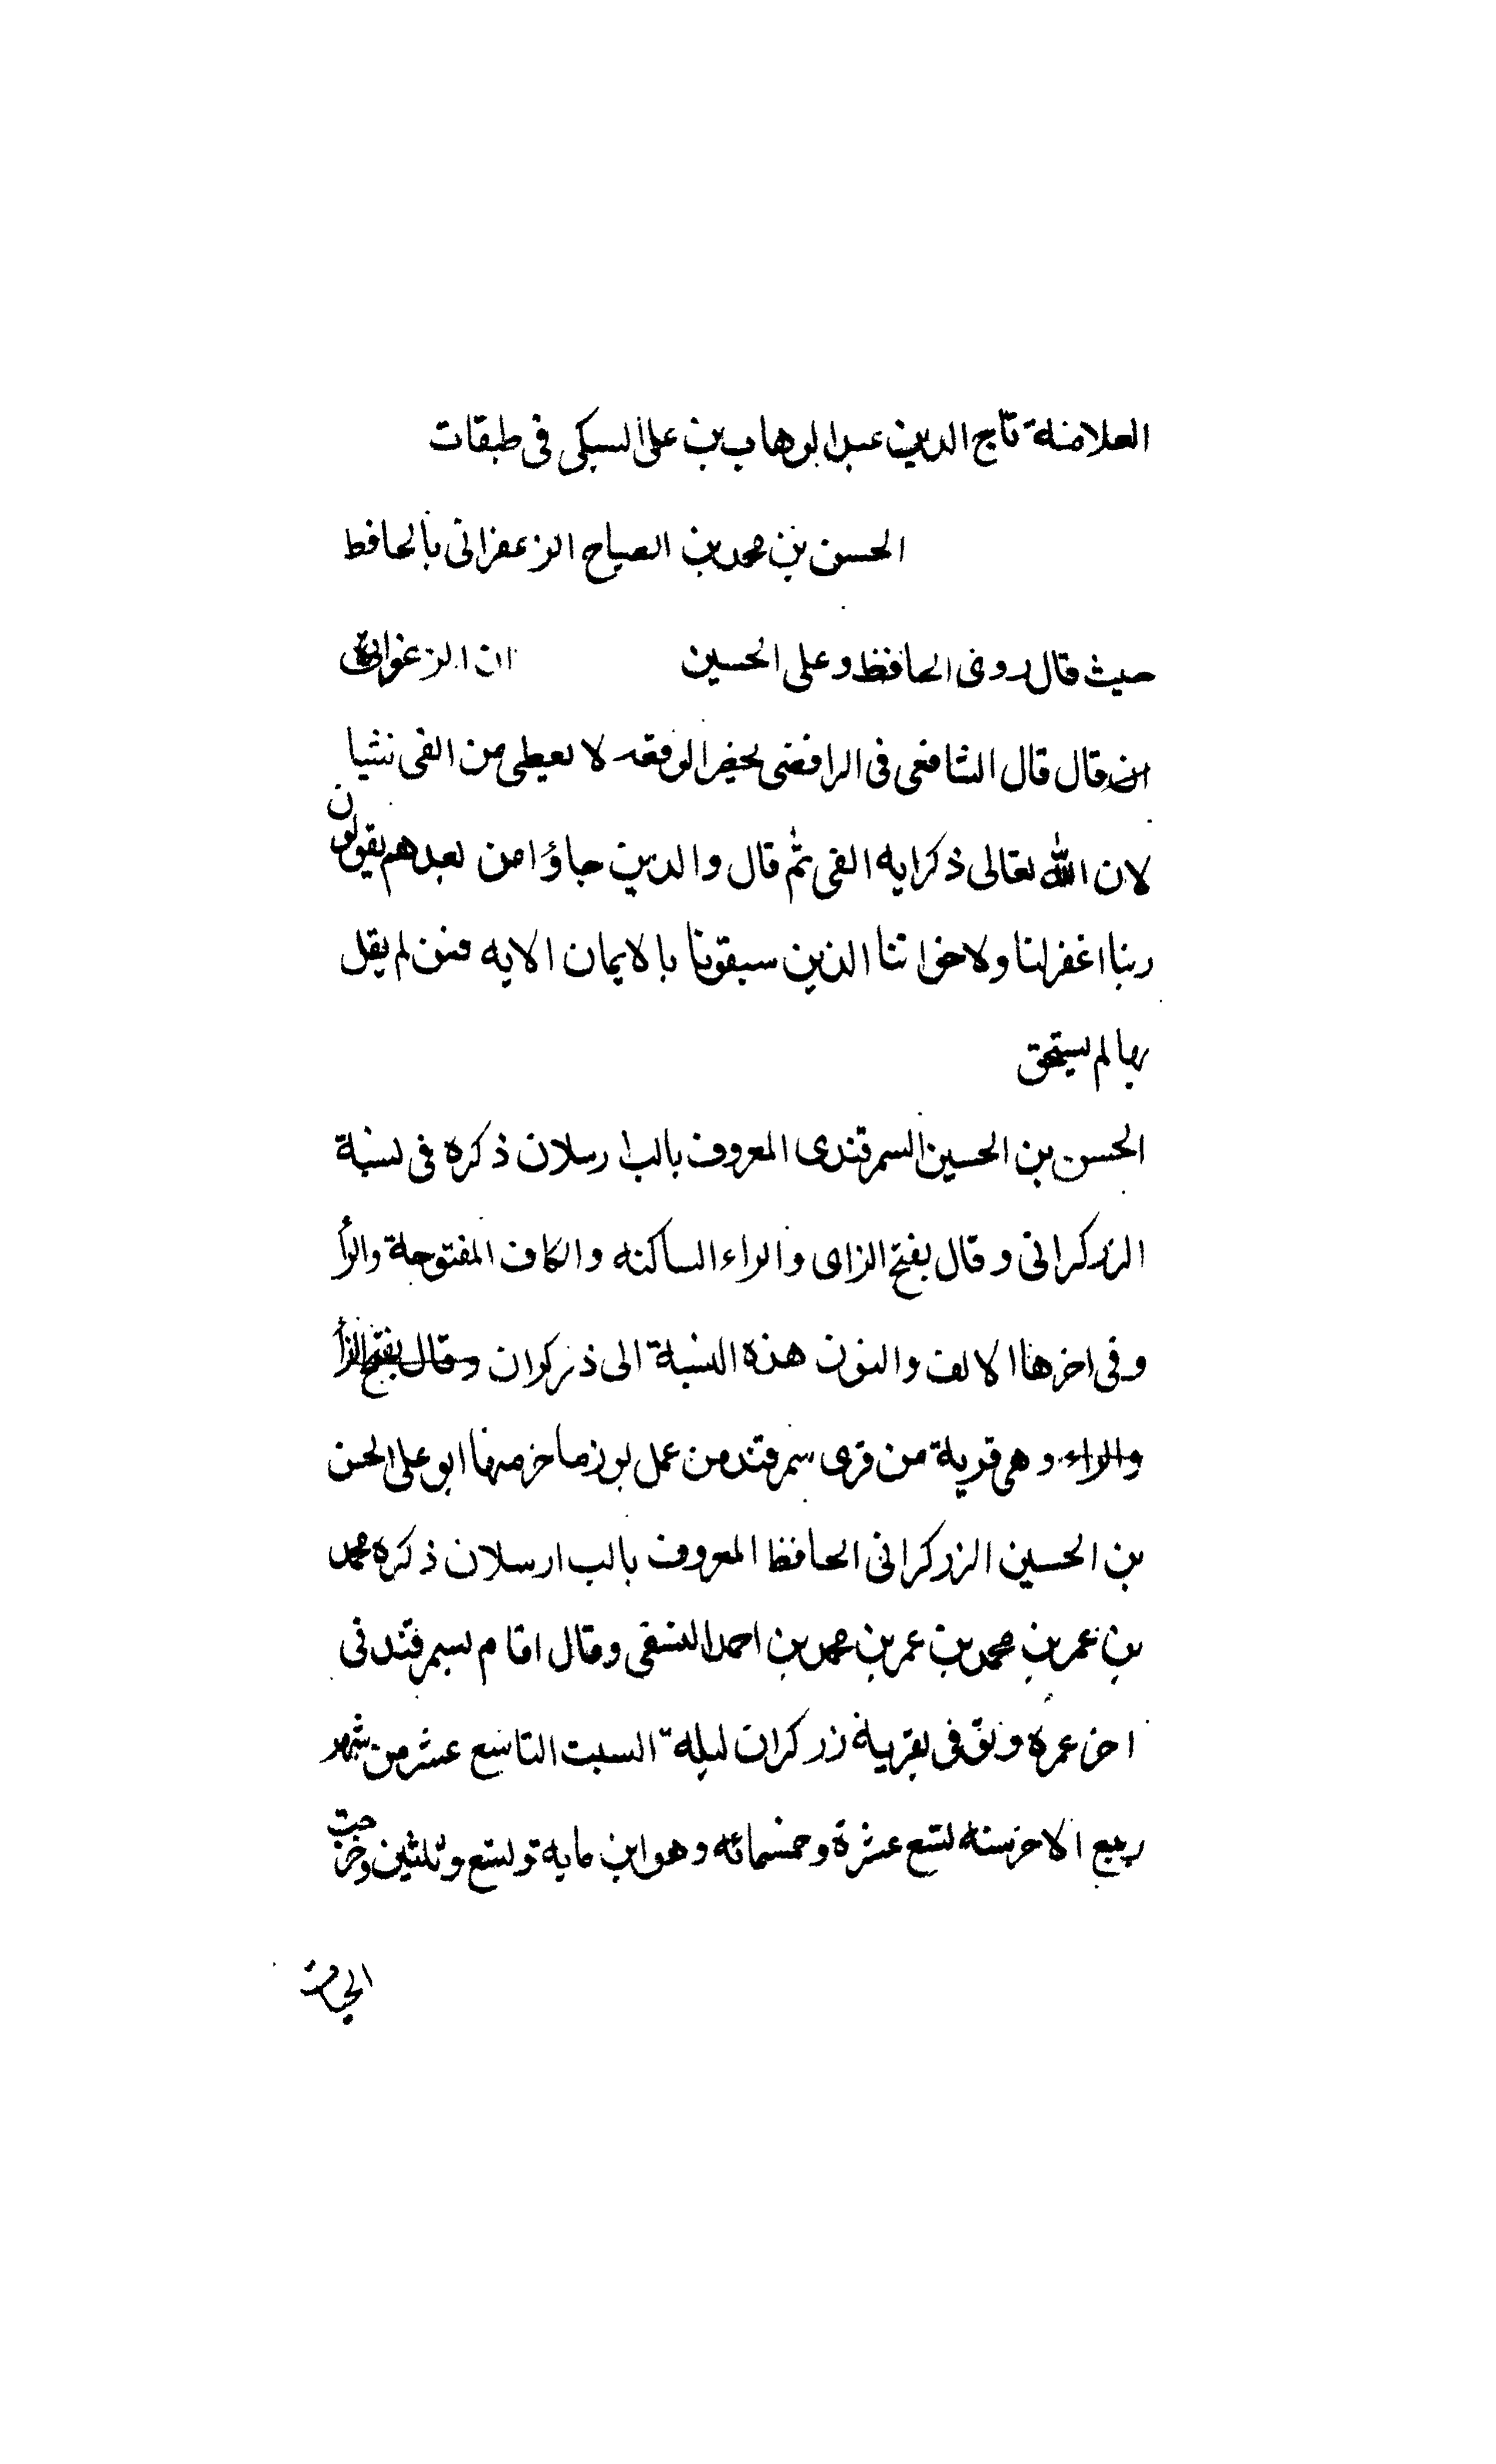 العلامة تاج الدين عبد الوهاب بن على السبكى فى طبقات
الحسن بن محمد بن الصباح الزعفرانى بالحافظ
حيث قال روى الحافظ وعلى الحسين ان الزعفرانى
قال قال الشافعى فى الرافضى يحضر الوقعه لا يعطى من الفى شيا
لان الله تعالى ذكر ايه الفى ثم قال والذين جاؤا من بعدهم يقولون
ربنا اغفر لنا ولاخواننا الذين سبقونا بالايمان الايه فمن لم يقل
بها لم يستحق
الحسن بن الحسين السمرقندى المعروف بالب ارسلان ذكره فى نسبة
الزركرانى وقال بفتح الزاى والراء الساكنه والكاف المفتوحة والرأ
وفى اخرها الالف والنون هذه النسبة الى ذركران وقال بفتح الزا
والراء وهى قرية من قرى سمرقند من عمل بوزماخر منها ابو على الحسن
بن الحسين الزركرانى الحافظ المعروف بالب ارسلان ذكره محمد
بن عمر بن محمد بن عمر بن محمد بن احمد النسفى وقال اقام بسمرقند فى
اخر عمره وتوفى بقرية زركران ليلة السبت التاسع عشر من شهر
ربيع الاخر سنة تسع عشرة وخمسمائه وهو ابن مايه وتسع وثلثين وخرجت
الى